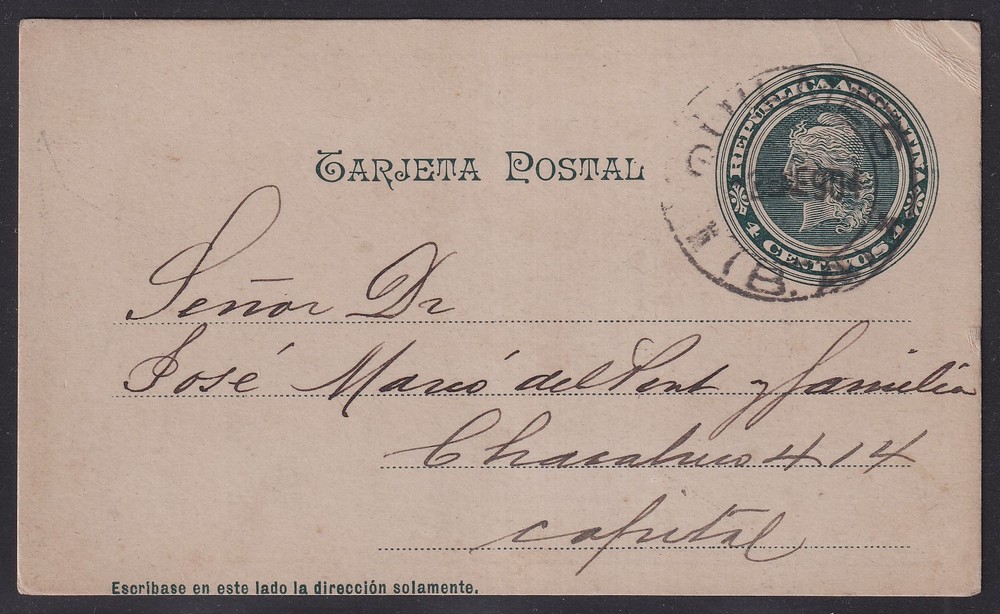 TARJETA POSTAL
REPÚBLICA ARGENTINA
4 CENTAVOS 4
QUILMES
(B. A.)
Señor Dr
José Marcó del Pont y familia
Chacabuco 414
capital
Escríbase en este lado la dirección solamente.